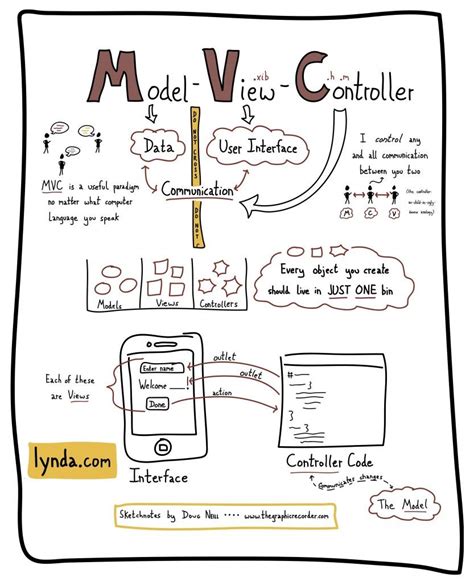 .xib
.h .m
Model-View-Controller
Data
User Interface
DO NOT CROSS
DO NOT
Communication
MVC is a useful paradigm
no matter what computer
language you speak
I control any
and all communication
between you two
M C V
Models
Views
Controllers
Every object you create
should live in JUST ONE bin
Each of these
are Views
Enter name
Welcome ___!
Done
outlet
outlet
action
#
}
}
}
lynda.com
Interface
Controller Code
communicates changes
The Model
Sketchnotes by Doug Neill .... www.thegraphicrecorder.com